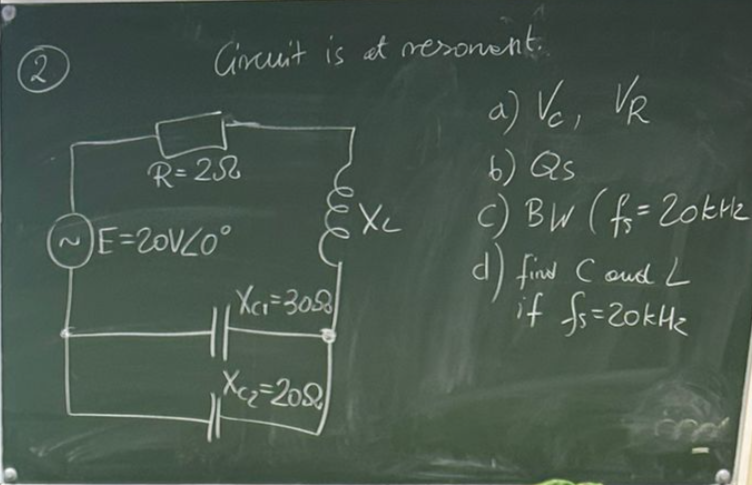 2
Circuit is at resonent.
R=2Ω
E=20V∠0°
XL
Xc1=30Ω
Xc2=20Ω
a) Vc, VR
b) Qs
c) BW (fs=20kHz
d) find C and L
if fs=20kHz